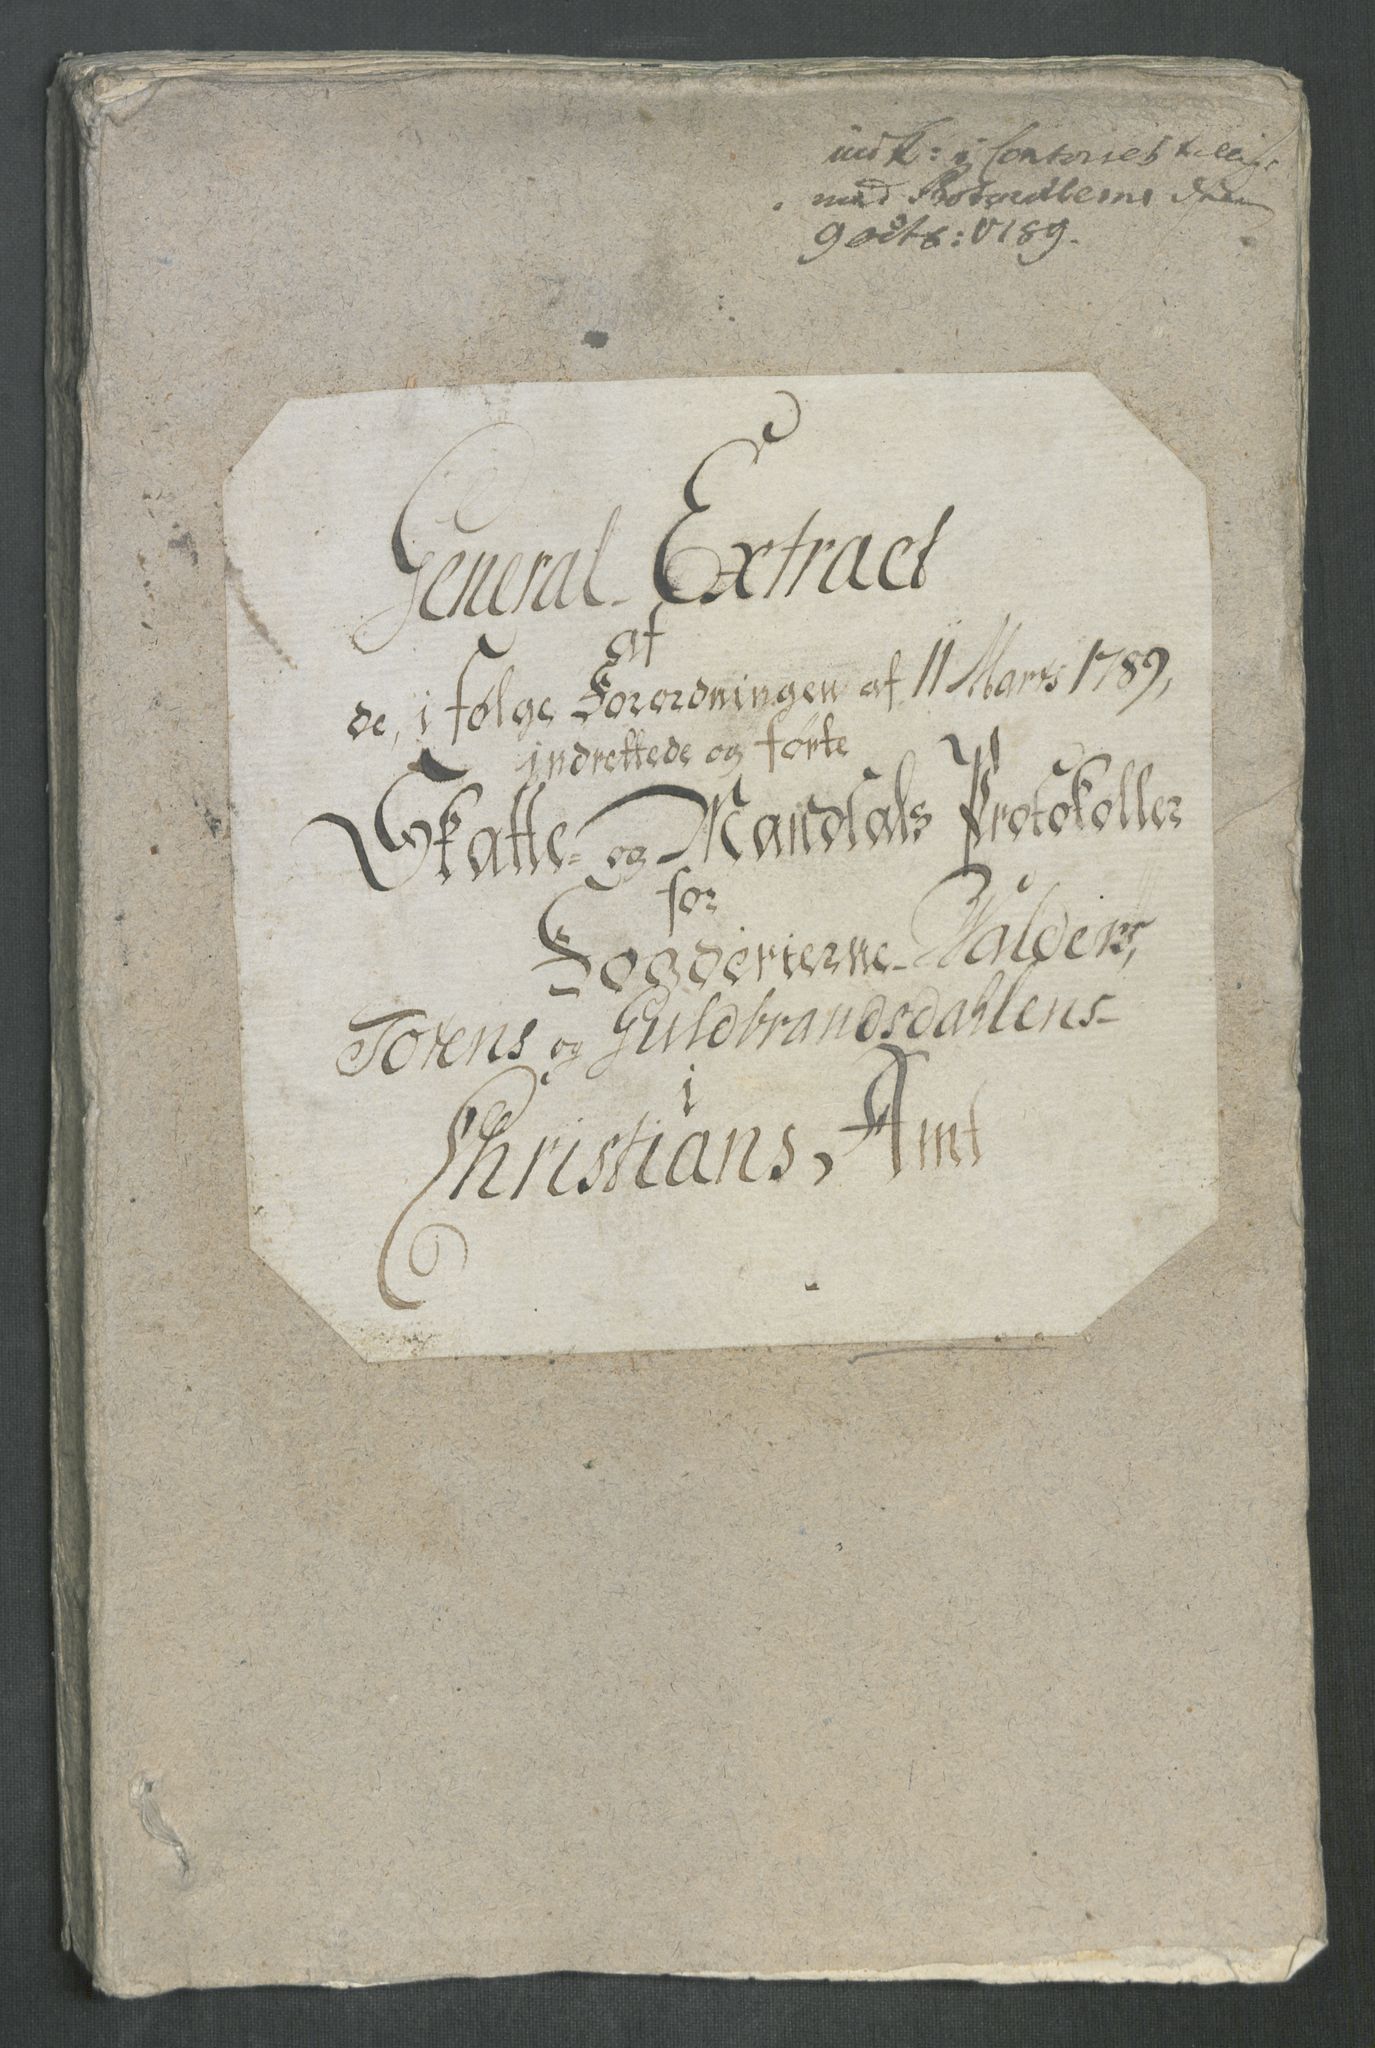 indk: i Contoiret
med Protocollerne den
9 octb: 1789.
General-Extract
af
de, i følge Forordningen af 11 Marts 1789,
indrettede og førte
Skatte- og Mandtals Protokoller
for
Fogderierne Walders,
Totens og Guldbrandsdahlens
i
Christians, Amt